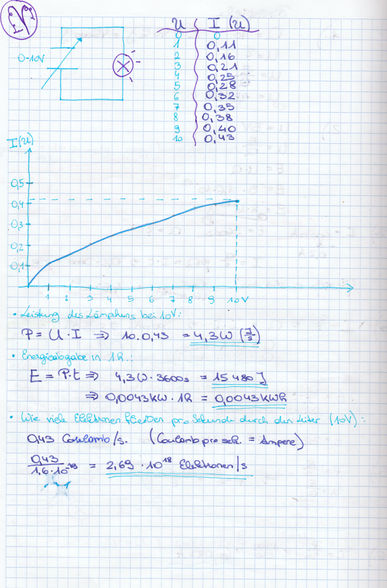 U | I (U)
0 | 0
1 | 0,11
2 | 0,16
3 | 0,21
4 | 0,25
5 | 0,28
6 | 0,32
7 | 0,35
8 | 0,38
9 | 0,40
10 | 0,43
0-10V
I(U)
0,5
0,4
0,3
0,2
0,1
1 2 3 4 5 6 7 8 9 10V
• Leistung des Lämpchens bei 10V:
P = U · I ⇒ 10 · 0,43 = 4,3W (J/s)
• Energieabgabe in 1h:
E = P·t ⇒ 4,3W · 3600s = 15480 J
⇒ 0,0043kW · 1h = 0,0043kWh
• Wie viele Elektronen fließen pro Sekunde durch den Leiter (10V):
0,43 Coulomb/s. (Coulomb pro sek. = Ampere)
0,43 / 1,6·10⁻¹⁹ = 2,69 · 10¹⁸ Elektronen/s